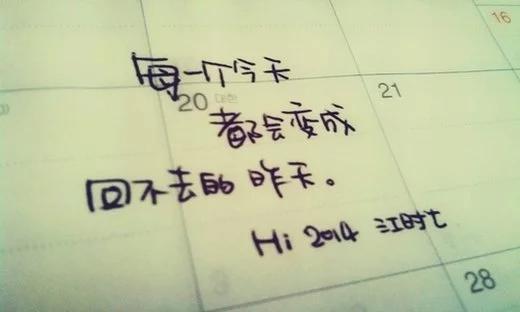 16
每一个今天
20 대한
21
都会变成
回不去的昨天。
Hi 2014
28